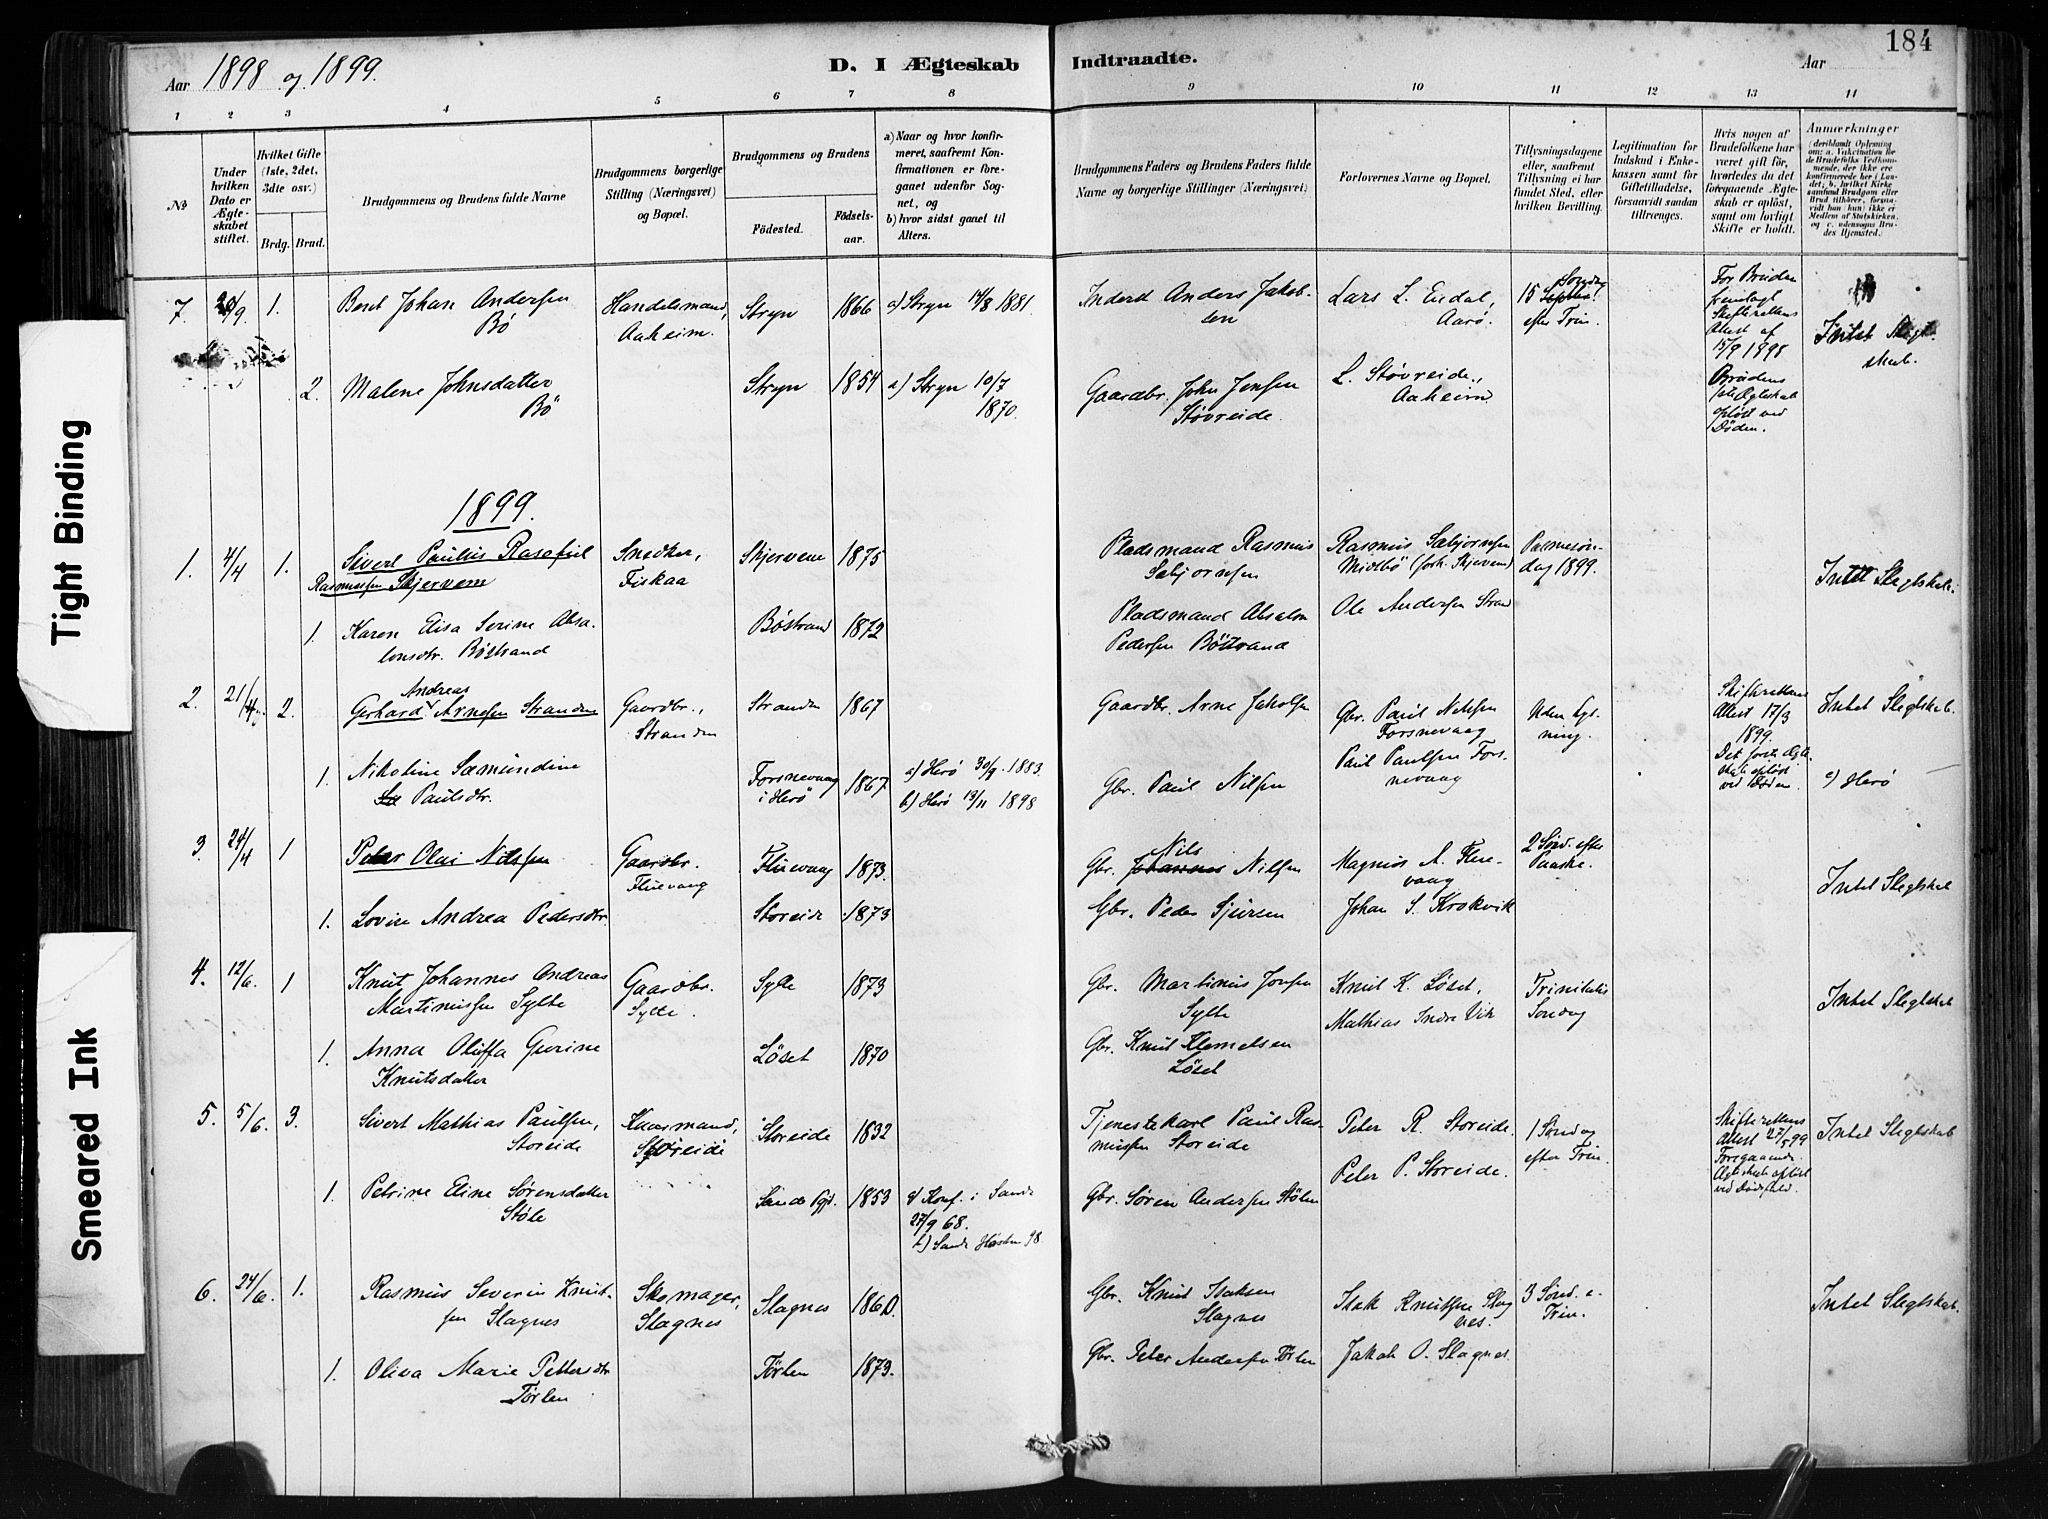 Aar 1898 og 1899.
D. I Ægteskab Indtraadte.
Aar
184
1 2 3 4 5 6 7 8 9 10 11 12 13 14
No
Under hvilken Dato er Ægteskabet stiftet.
Hvilket Gifte (1ste, 2det, 3die osv.)
Brdg. Brud.
Brudgommens og Brudens fulde Navne
Brudgommens borgerlige Stilling (Næringsvei) og Bopæl.
Brudgommens og Brudens
Födested.
Födselsaar.
a) Naar og hvor konfirmeret, saafremt Konfirmationen er foregaaet udenfor Sognet, og
b) hvor sidst gaaet til Alters.
Brudgommens Faders og Brudens Faders fulde Navne og borgerlige Stillinger (Næringsvei)
Forlovernes Navne og Bopæl.
Tillysningsdagene eller, saafremt Tillysning ei har fundet Sted, efter hvilken Bevilling.
Legitimation for Indskud i Enkekassen samt for Giftetilladelse, forsaavidt saadan tillrænges.
Hvis nogen af Brudefolkene har været gift för, hvorledes da det foregaaende Ægteskab er oplöst, samt om lovligt Skifte er holdt.
Anmærkninger (deriblandt Oplysning om: a. Vakcination for de Brudefolks Vedkommende, der ikke ere konfirmerede her i Landet; b. hvilket Kirkesamfund Brudgom eller Brud tilhörer, forsaavidt han (hun) ikke ei Medlem af Statskirken, og c. udensogns Brudes Hjemsted.)
7. 1. Bent Johan Andersen Bø
Handelsmand, Aaheim.
Stryn 1866 a) Stryn 14/8 1881.
Inderst Anders Jakobsen
Lars L. Eidal, Aarø.
15 Søndag efter Trin.
For Bruden fremlagt Skifterettens Attest af 15/9 1898
Intet Slegtskab.
2. Malene Johnsdatter Bö
Stryn 1854 a) Stryn 10/7 1870.
Gaardbr. John Jensen Støvreide.
L. Støvreide, Aaheim.
Brudens første Ægteskab opløst ved Døden.
1899.
1. 4/4 1. Sivert Paulus Rasmussen Skjervem
Snedker, Fiskaa
Skjervem 1875
Pladsmand Rasmus Sæbjørnsen
Rasmus Sæbjørnsen Midtbø (forh. Skjervem)
Palmesøndag 1899.
Intet Slegtskab.
1. Karen Elisa Serine Absalonsdtr. Bøstrand
Bøstrand 1872
Pladsmand Absalon Pedersen Böstrand
Ole Andersen Strand
2. 21/4 2. Gerhard Andreas Arnesen Stranden
Gaardbr., Stranden
Stranden 1867
Gaardbr. Arne Jakobsen
Gbr. Paul Nilssen Forsnevaag
Uden Lysning.
Skifterettens Attest 17/3 1899.
Intet Slegtskab.
1. Nikoline Sæmundine Paulsdtr.
Forsnevaag i Herø 1867
a) Herø 30/9. 1883.
b) Herø 13/11 1898
Gbr. Paul Nilsen
Paul Paulsen Forsnevaag
Det første Ægteskab opløst ved Døden.
c) Herø
3. 24/4 1 Peter Olai Nilssen
Gaardbr. Fluevaag
Fluevaag 1873.
Gbr. Johannes Nils Nilsen
Magnus A. Fluevaag
2 Sønd. efter Paaske.
Intet Slegtskab
1. Lovise Andrea Pedersdtr.
Storeide 1873
Gbr. Peder Sjursen
Johan S. Krokvik
4. 12/6. 1 Knut Johannes Andreas Martinussen Sylte
Gaardbr. Sylte.
Sylte 1873
Gbr. Martinus Jonsen Sylte
Knut K. Løset,
Trinitatis Søndag
Intet Slegtskab
1. Anna Oluffa Gurine Knutsdatter
Løset 1870
Gbr. Knut Klemetsen Løset
Mathias Indre Vik
5. 5/6. 3. Sivert Mathias Paulsen, Storeide
Kaarmand, Storeide
Storeide 1832
Tjenestekarl Paul Rasmussen Storeide
Peter R. Storeide.
1 Søndag efter Trin.
Skifterettens Attest 27/5 99
Foregaaende Ægteskab opløst ved Dødsfald.
Intet Slegtskab
1. Petrine Eline Sørensdatter Støle
Sande Pgd. 1853
a) Konf. i Sande 27/9 68.
b) Sande Høsten 98.
Gbr. Søren Andersen Stölen
Peter P. Storeide.
6. 24/6 1. Rasmus Severin Knutsen Slagnes
Skomager, Slagnes
Slagnes 1860.
Gbr. Knut Isaksen Slagnes
Isak Knutsen Slagnes.
3 Sønd. e. Trin.
Intet Slegtskab.
1. Oliva Marie Pettersdtr Tørlen
Tørlen 1873.
Gbr. Peter Andersen Tørlen
Jakob O. Slagnes.
Tight Binding
Smeared Ink